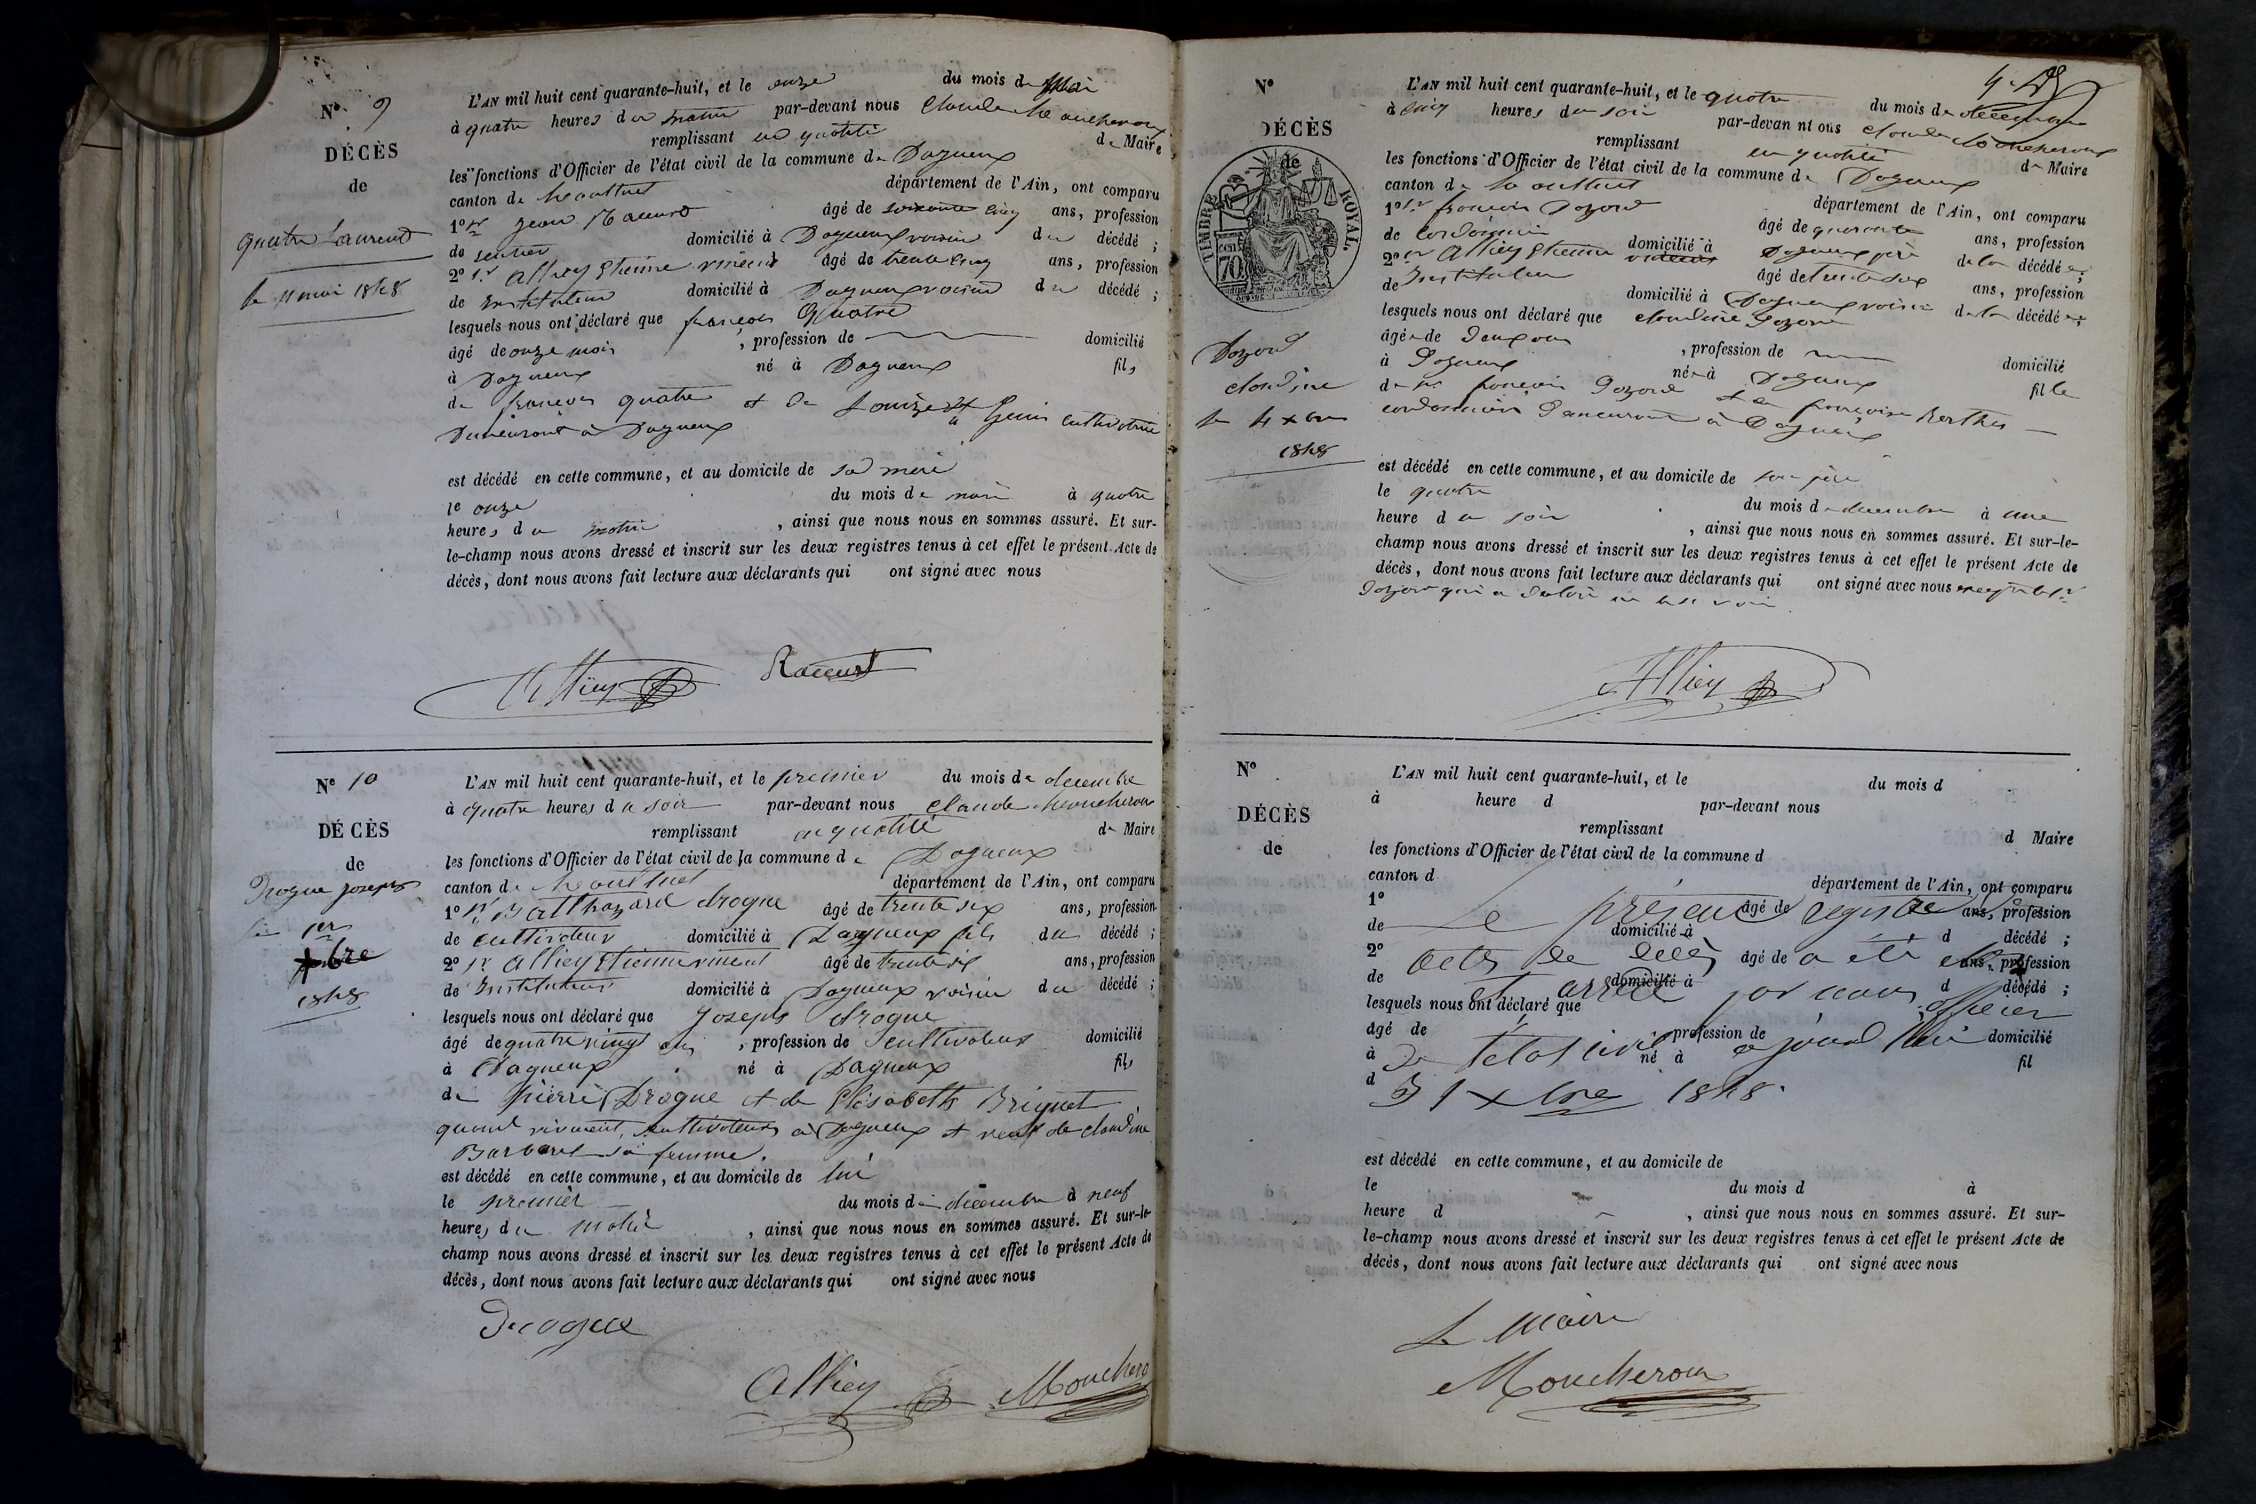 N° 9
DÉCÈS
de
quatre Laurent
le 11 mai 1848
L'AN mil huit cent quarante-huit, et le onze du mois de Mai
à quatre heures du matin par-devant nous Claude Moucheroux
remplissant en qualité de Maire
les fonctions d'Officier de l'état civil de la commune de Dagneux
canton de Montluel département de l'Ain, ont comparu
1° sr jean Raccurt âgé de soixante cinq ans, profession
de domicilié à Dagneux voisin du décédé ;
2° sr Alliey Etienne vincent âgé de trente cinq ans, profession
de Instituteur domicilié à Dagneux voisin du décédé ;
lesquels nous ont déclaré que françois Quatre
âgé de onze mois , profession de domicilié
à Dagneux né à Dagneux fils
de françois quatre et de Louise cultivatrice
Demeurant à Dagneux
est décédé en cette commune, et au domicile de sa mère
le onze du mois de mai à quatre
heures du matin , ainsi que nous nous en sommes assuré. Et sur-
le-champ nous avons dressé et inscrit sur les deux registres tenus à cet effet le présent Acte de
décès, dont nous avons fait lecture aux déclarants qui ont signé avec nous
Alliey Raccurt
N° 10
DÉCÈS
de
Drogue joseph
le 1er
Xbre
1848
L'AN mil huit cent quarante-huit, et le premier du mois de decembre
à quatre heures du soir par-devant nous Claude Moucheroux
remplissant en qualité de Maire
les fonctions d'Officier de l'état civil de la commune de Dagneux
canton de Montluel département de l'Ain, ont comparu
1° sr Balthazard drogue âgé de trente six ans, profession
de cultivateur domicilié à Dagneux fils du décédé ;
2° sr Alliey Etienne vincent âgé de trente six ans, profession
de Instituteur domicilié à Dagneux voisin du décédé ;
lesquels nous ont déclaré que Joseph drogue
âgé de quatre vingt ans , profession de cultivateur domicilié
à Dagneux né à Dagneux fils
de pierre Drogue et de Elisabeth Briquet
quand vivaient, cultivateurs à Dagneux et veuf de claudine
Barbaret sa femme.
est décédé en cette commune, et au domicile de lui
le premier du mois de decembre à neuf
heures du matin , ainsi que nous nous en sommes assuré. Et sur-le-
champ nous avons dressé et inscrit sur les deux registres tenus à cet effet le présent Acte de
décès, dont nous avons fait lecture aux déclarants qui ont signé avec nous
Drogue
Alliey Moucherou
N°
DÉCÈS
de
TIMBRE ROYAL.
70
Dozord
claudine
le 4 Xbre
1848
L'AN mil huit cent quarante-huit, et le quatre du mois de decembre
à cinq heures du soir par-devan nt ous Claude Moucheroux
remplissant en qualité de Maire
les fonctions d'Officier de l'état civil de la commune de Dagneux
canton de Montluel département de l'Ain, ont comparu
1° sr francois Dozord âgé de quarante ans, profession
de Cordonnier domicilié à Dagneux père de la décédée ;
2° sr Alliey Etienne vincent âgé de trente six ans, profession
de Instituteur domicilié à Dagneux voisin de la décédée ;
lesquels nous ont déclaré que claudine Dozord
âgée de Deux ans , profession de domicilié
à Dagneux née à Dagneux fille
de sr francois Dozord et de françoise Berthet
cordonnier Demeurant à Dagneux
est décédé en cette commune, et au domicile de son père
le quatre du mois de decembre à une
heure du soir , ainsi que nous nous en sommes assuré. Et sur-le-
champ nous avons dressé et inscrit sur les deux registres tenus à cet effet le présent Acte de
décès, dont nous avons fait lecture aux déclarants qui ont signé avec nous excepté le sr
Dozord qui a déclaré ne le savoir
Alliey
N°
DÉCÈS
de
L'AN mil huit cent quarante-huit, et le du mois d
à heure d par-devant nous
remplissant d Maire
les fonctions d'Officier de l'état civil de la commune d
canton d département de l'Ain, ont comparu
1° âgé de ans, profession
Le présent registre des
de domicilié à d décédé ;
2° âgé de ans, profession
actes de décès a été clos
de domicilié à d décédé ;
et arrêté par nous officier
lesquels nous ont déclaré que
âgé de profession de domicilié
de l'état civil cejourd'hui
à né à fil
d
31 Xbre 1848.
est décédé en cette commune, et au domicile de
le du mois d à
heure d , ainsi que nous nous en sommes assuré. Et sur-
le-champ nous avons dressé et inscrit sur les deux registres tenus à cet effet le présent Acte de
décès, dont nous avons fait lecture aux déclarants qui ont signé avec nous
Le Maire
Moucheroux